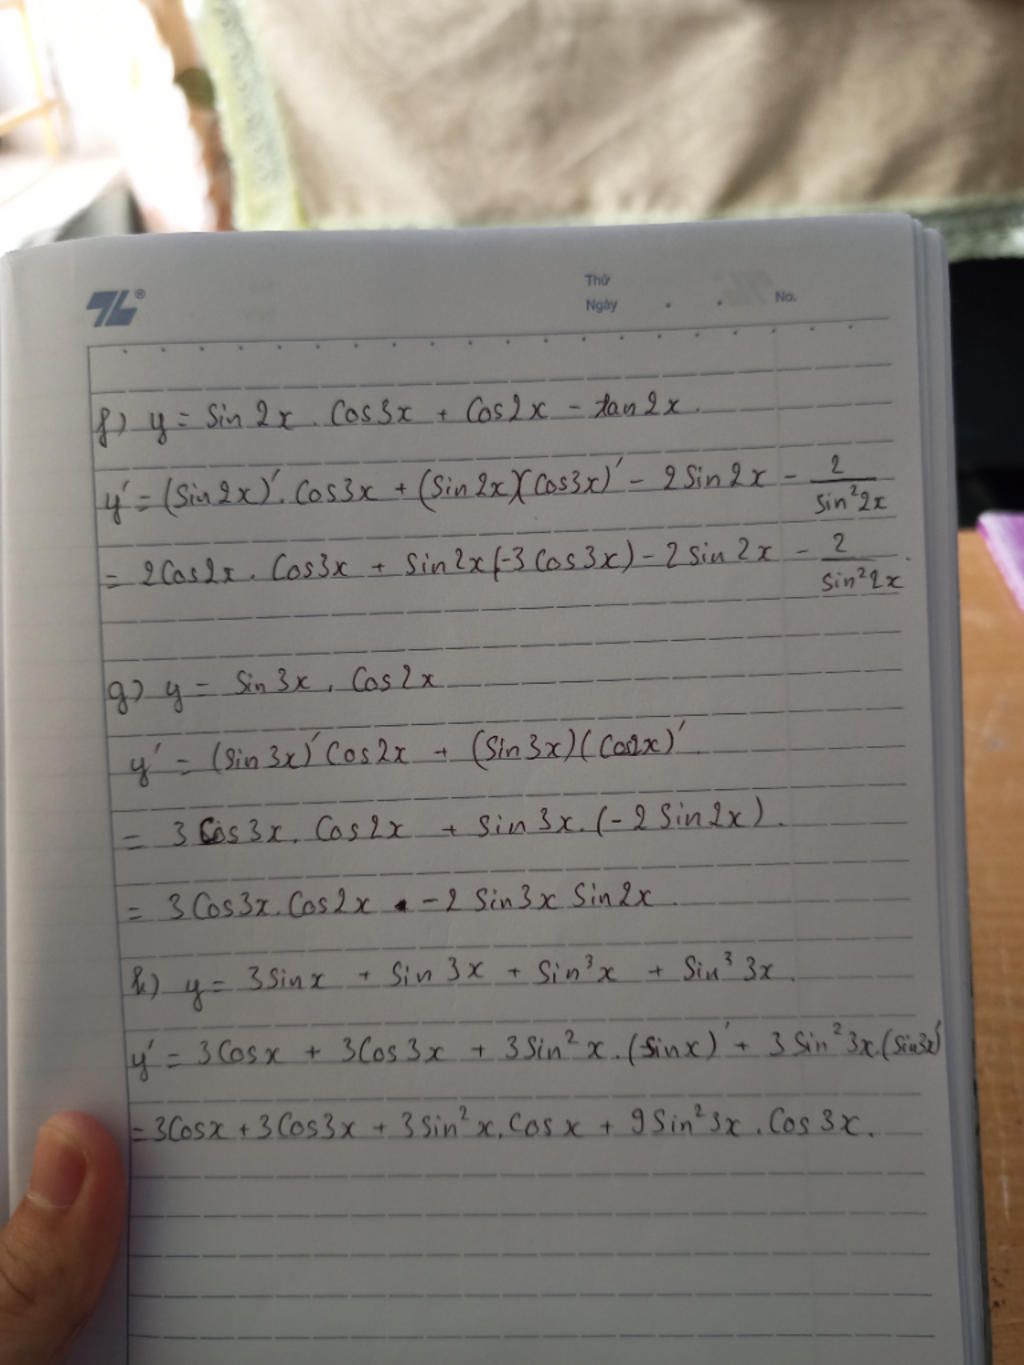 TL®
Thứ
Ngày . . No.
f) y = Sin2x . Cos3x + Cos2x - tan2x.
y' = (Sin2x)'. Cos3x + (Sin2x)(Cos3x)' - 2Sin2x - 2/sin²2x
= 2Cos2x . Cos3x + Sin2x(-3Cos3x) - 2Sin2x - 2/sin²2x.
g) y = Sin3x . Cos2x
y' = (Sin3x)' Cos2x + (Sin3x)(Cos2x)'.
= 3Cos3x. Cos2x + Sin3x.(-2Sin2x).
= 3Cos3x.Cos2x - 2Sin3x Sin2x.
h) y = 3Sinx + Sin3x + Sin³x + Sin³3x.
y' = 3Cosx + 3Cos3x + 3Sin²x.(Sinx)' + 3Sin²3x.(Sin3x)'
= 3Cosx + 3Cos3x + 3Sin²x.Cosx + 9Sin²3x.Cos3x.